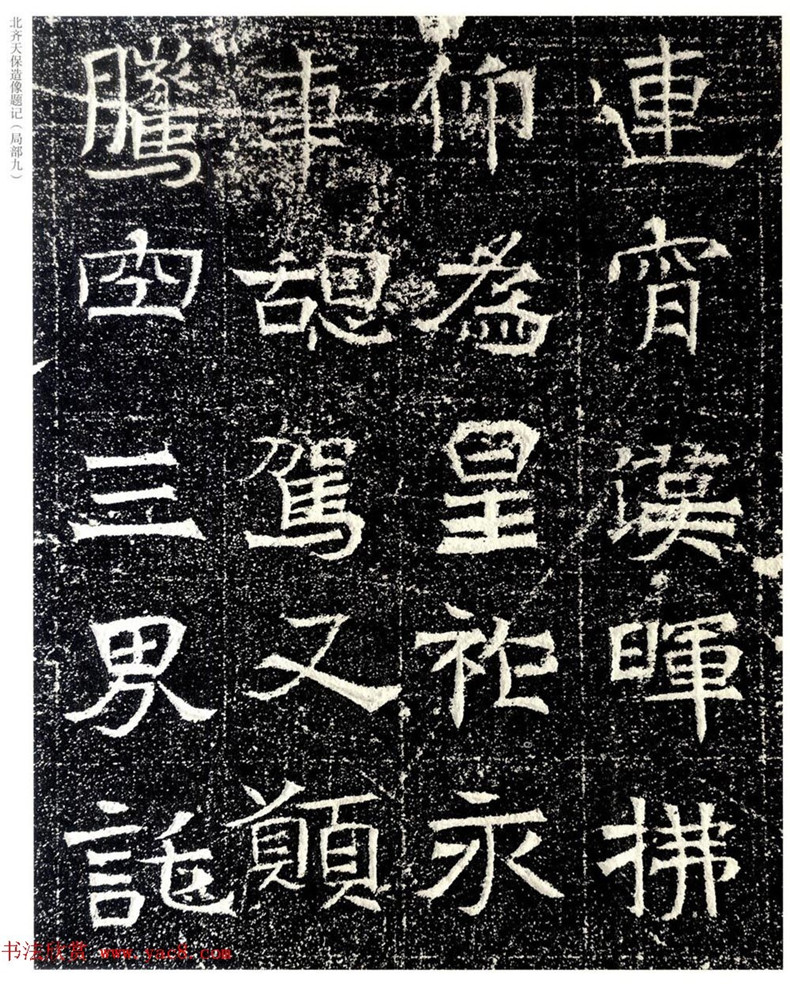 北齐天保造像题记（局部九）
連宵漢暉拂
仰為皇祚永
車憩駕又願
騰三界託
书法欣赏 www.yac8.com